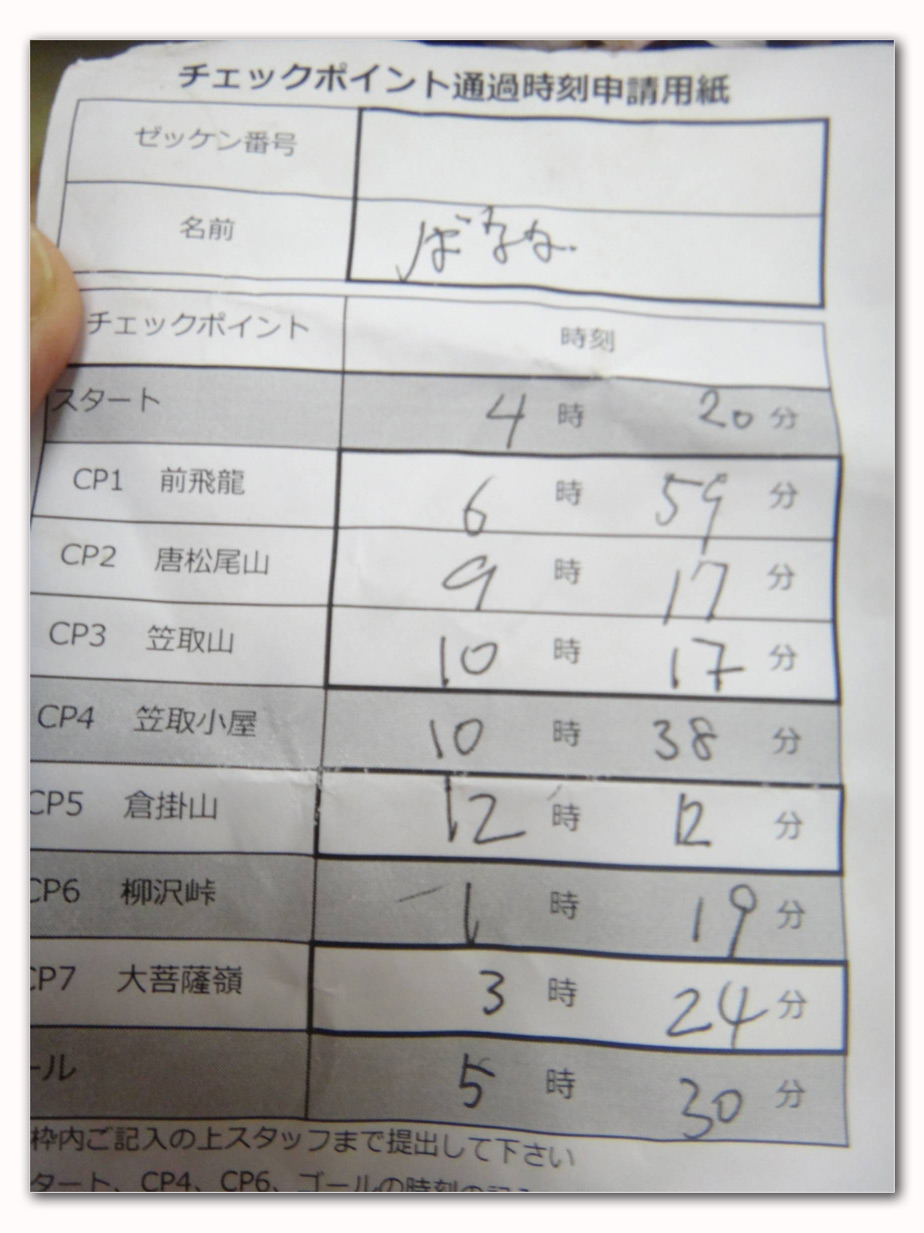 チェックポイント通過時刻申請用紙
ゼッケン番号
名前 ばなな
チェックポイント 時刻
スタート 4 時 20 分
CP1 前飛龍 6 時 59 分
CP2 唐松尾山 9 時 17 分
CP3 笠取山 10 時 17 分
CP4 笠取小屋 10 時 38 分
CP5 倉掛山 12 時 12 分
CP6 柳沢峠 1 時 19 分
CP7 大菩薩嶺 3 時 24 分
ール 5 時 30 分
枠内ご記入の上スタッフまで提出して下さい
タート、CP4、CP6、ゴールの時刻の